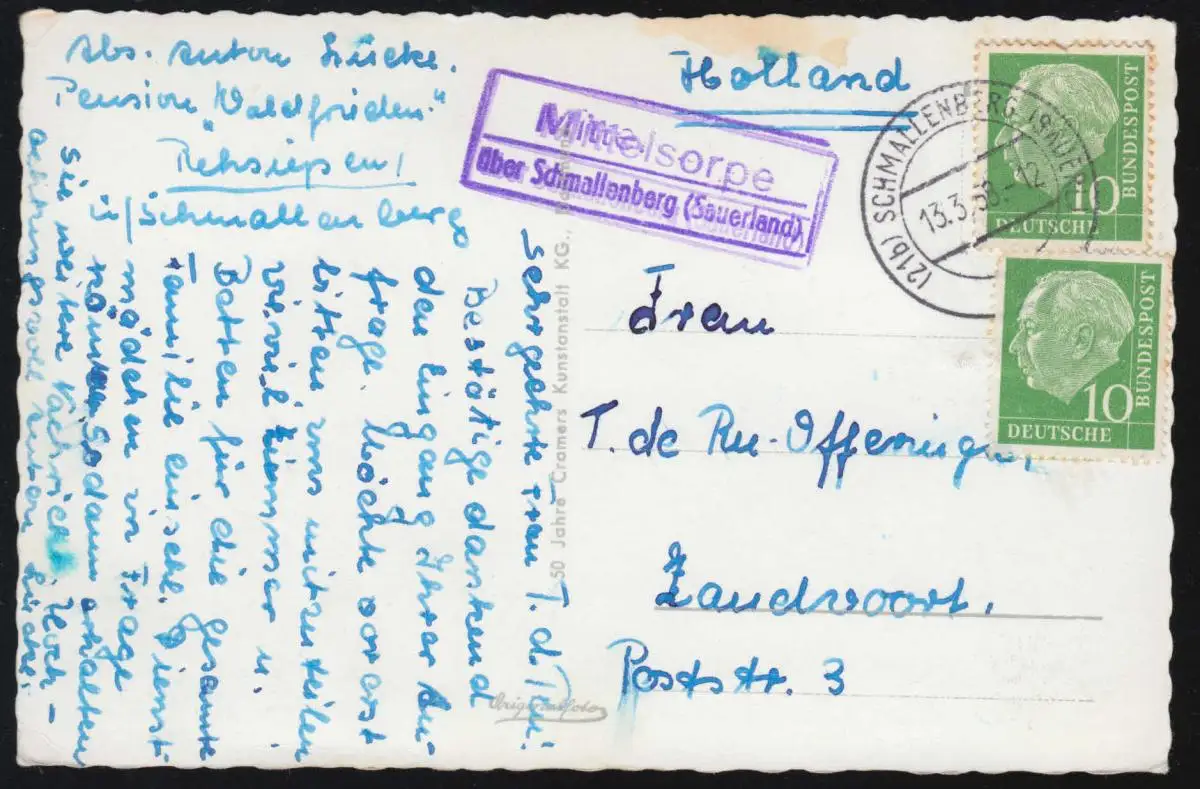 Abs. Anton Lücke.
Pension "Waldfrieden"
Rehsiepen/
ü/Schmallenberg
Holland
Mittelsorpe
über Schmallenberg (Sauerland)
(21b) SCHMALLENBERG (SAUERL
13.3.58.-12
10
BUNDESPOST
DEUTSCHE
10
BUNDESPOST
DEUTSCHE
Frau
T. de Ru-Offeringa,
Zandvoort.
Poststr. 3
50 Jahre Cramers Kunstanstalt KG.,
Originalfoto
Sehrgeehrte Frau T. d. Ru!
Bestätige dankend
den Eingang Ihrer An-
frage. Möchte vorerst
bitten uns mitzuteilen
wieviel Zimmer u.
Betten für die gesamte
Familie einschl. Dienst
mädchen in Frage
kämen. Sodann erhalten
Sie weitere Nachricht. Hoch-
achtungsvoll Anton Lücke.